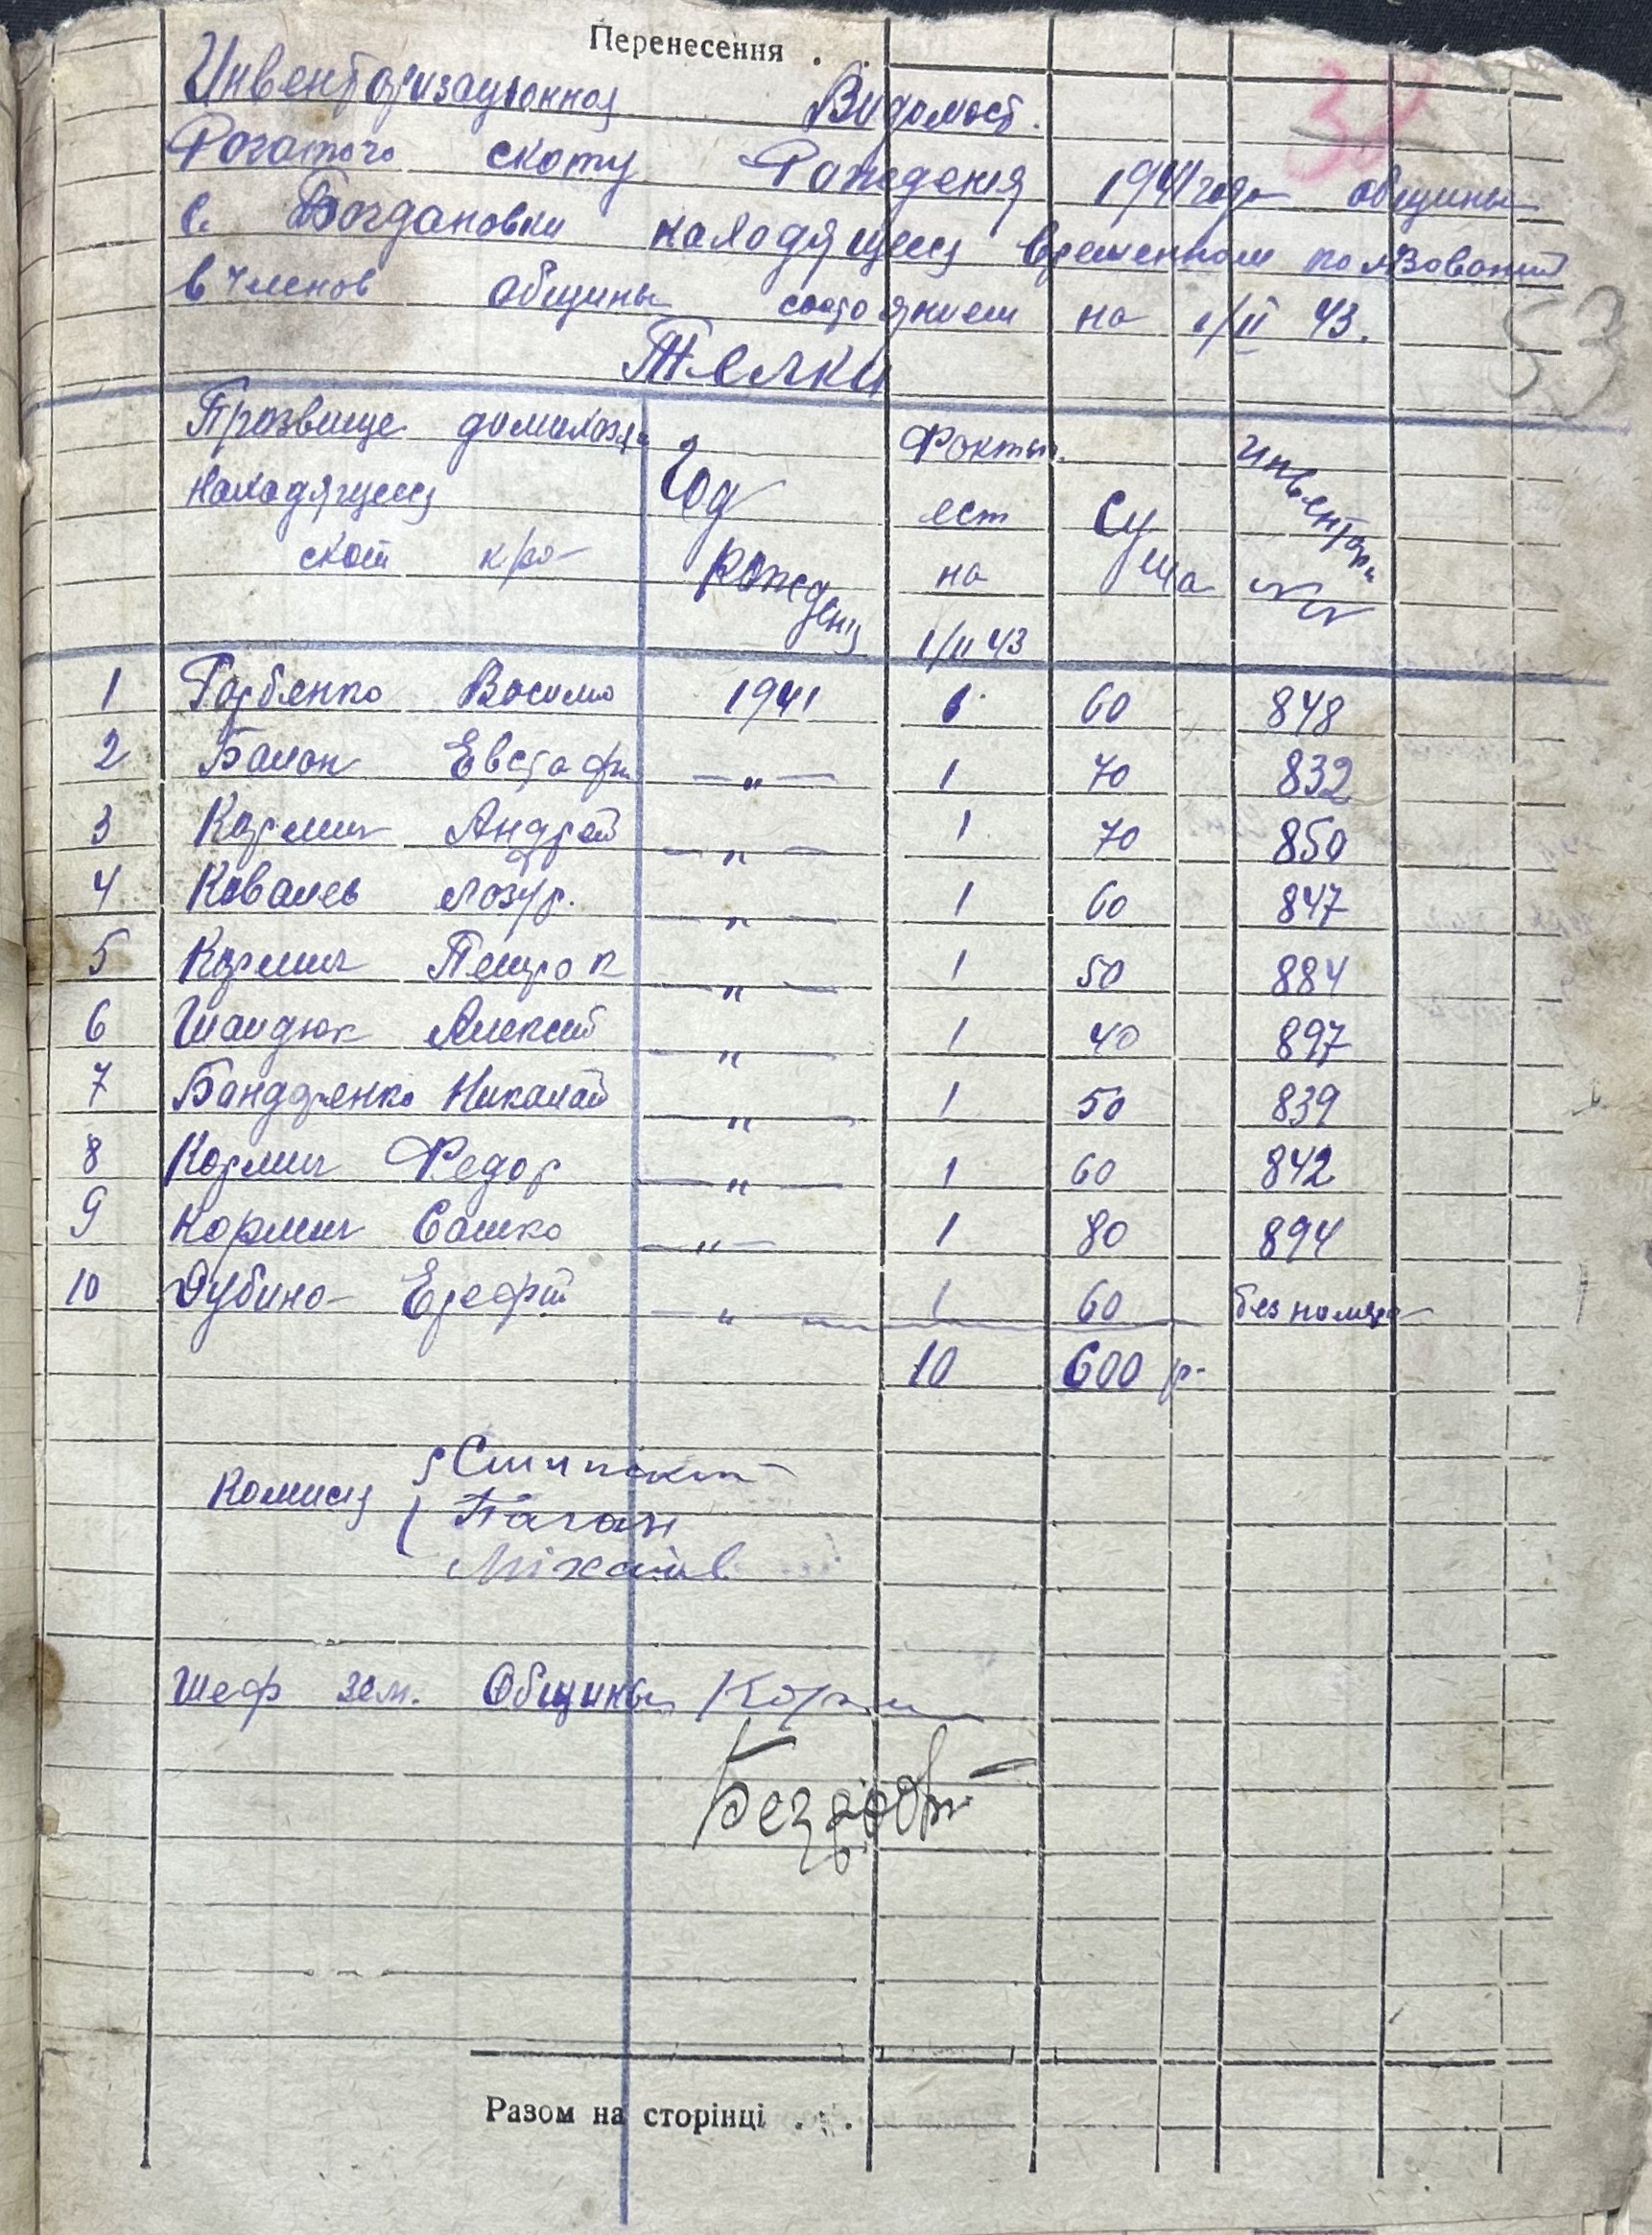 Перенесення . .
Инвенторизационноя Видомост.
Рогатого скоту Рождения 1941 года общины
с. Богдановки находящеся временном ползований
в членов общины состоянием на 1/II 43.
Телки
Прозвище домахозя
находящеся
скот к/ра
Год
рождения
Факты.
ест
на
1/II 43
Сума
инвентарн
№№
1 Горбенко Восило 1941 1 60 848
2 Балан Евстафи — " — 1 70 832
3 Кормич Андрей — " — 1 70 850
4 Ковалев Лозур. — " — 1 60 847
5 Кормич Петро К — " — 1 50 884
6 Шалдюк Алексей — " — 1 40 897
7 Бондаренко Николай — " — 1 50 839
8 Кормич Федор — " — 1 60 842
9 Кормич Сашко — " — 1 80 894
10 Дубина Ерефей — " — 1 60 без номера
10 600 р.
Комисия
Шеф зем. Общины
Разом на сторінці . . .
53